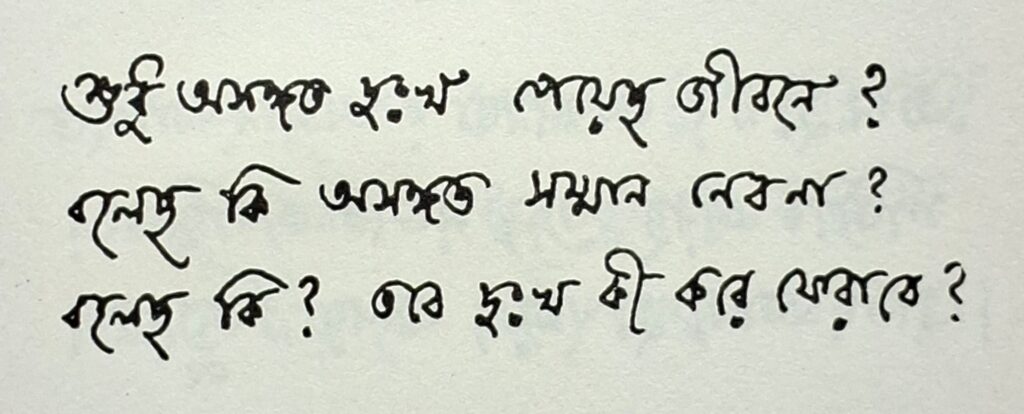 শুধু অসঙ্গত দুঃখ পেয়েছ জীবনে ?
বলেছ কি অসঙ্গত সম্মান নেবনা ?
বলেছ কি ? তবে দুঃখ কী করে ফেরাবে ?